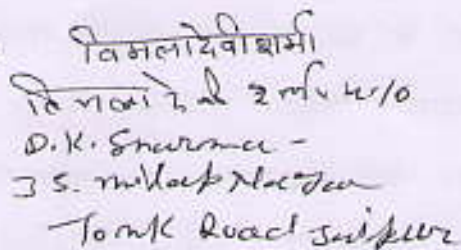 विमला देवी शर्मा
विमला देवी शर्मा W/O
D.K. Sharma -
35. Milap Nagar
Tonk Road Jaipur